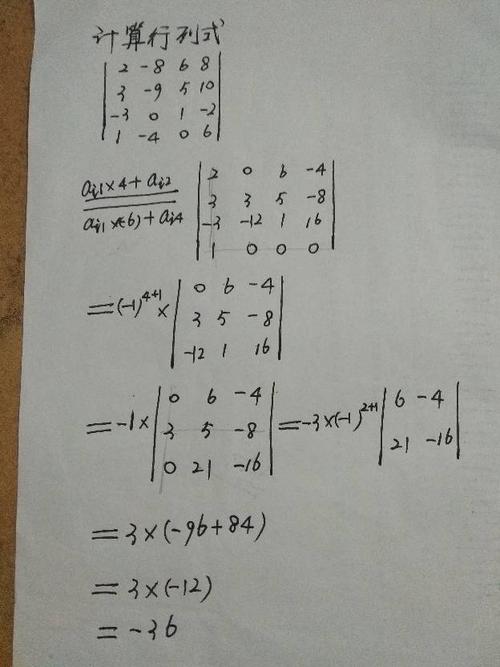 计算行列式
| 2 -8 6 8 |
| 3 -9 5 10 |
| -3 0 1 -2 |
| 1 -4 0 6 |
ai1×4+ai2
ai1×(-6)+ai4
| 2 0 6 -4 |
| 3 3 5 -8 |
| -3 -12 1 16 |
| 1 0 0 0 |
=(-1)^4+1 ×
| 0 6 -4 |
| 3 5 -8 |
| -12 1 16 |
=-1×
| 0 6 -4 |
| 3 5 -8 |
| 0 21 -16 |
=-3×(-1)^2+1
| 6 -4 |
| 21 -16 |
=3×(-96+84)
=3×(-12)
=-36